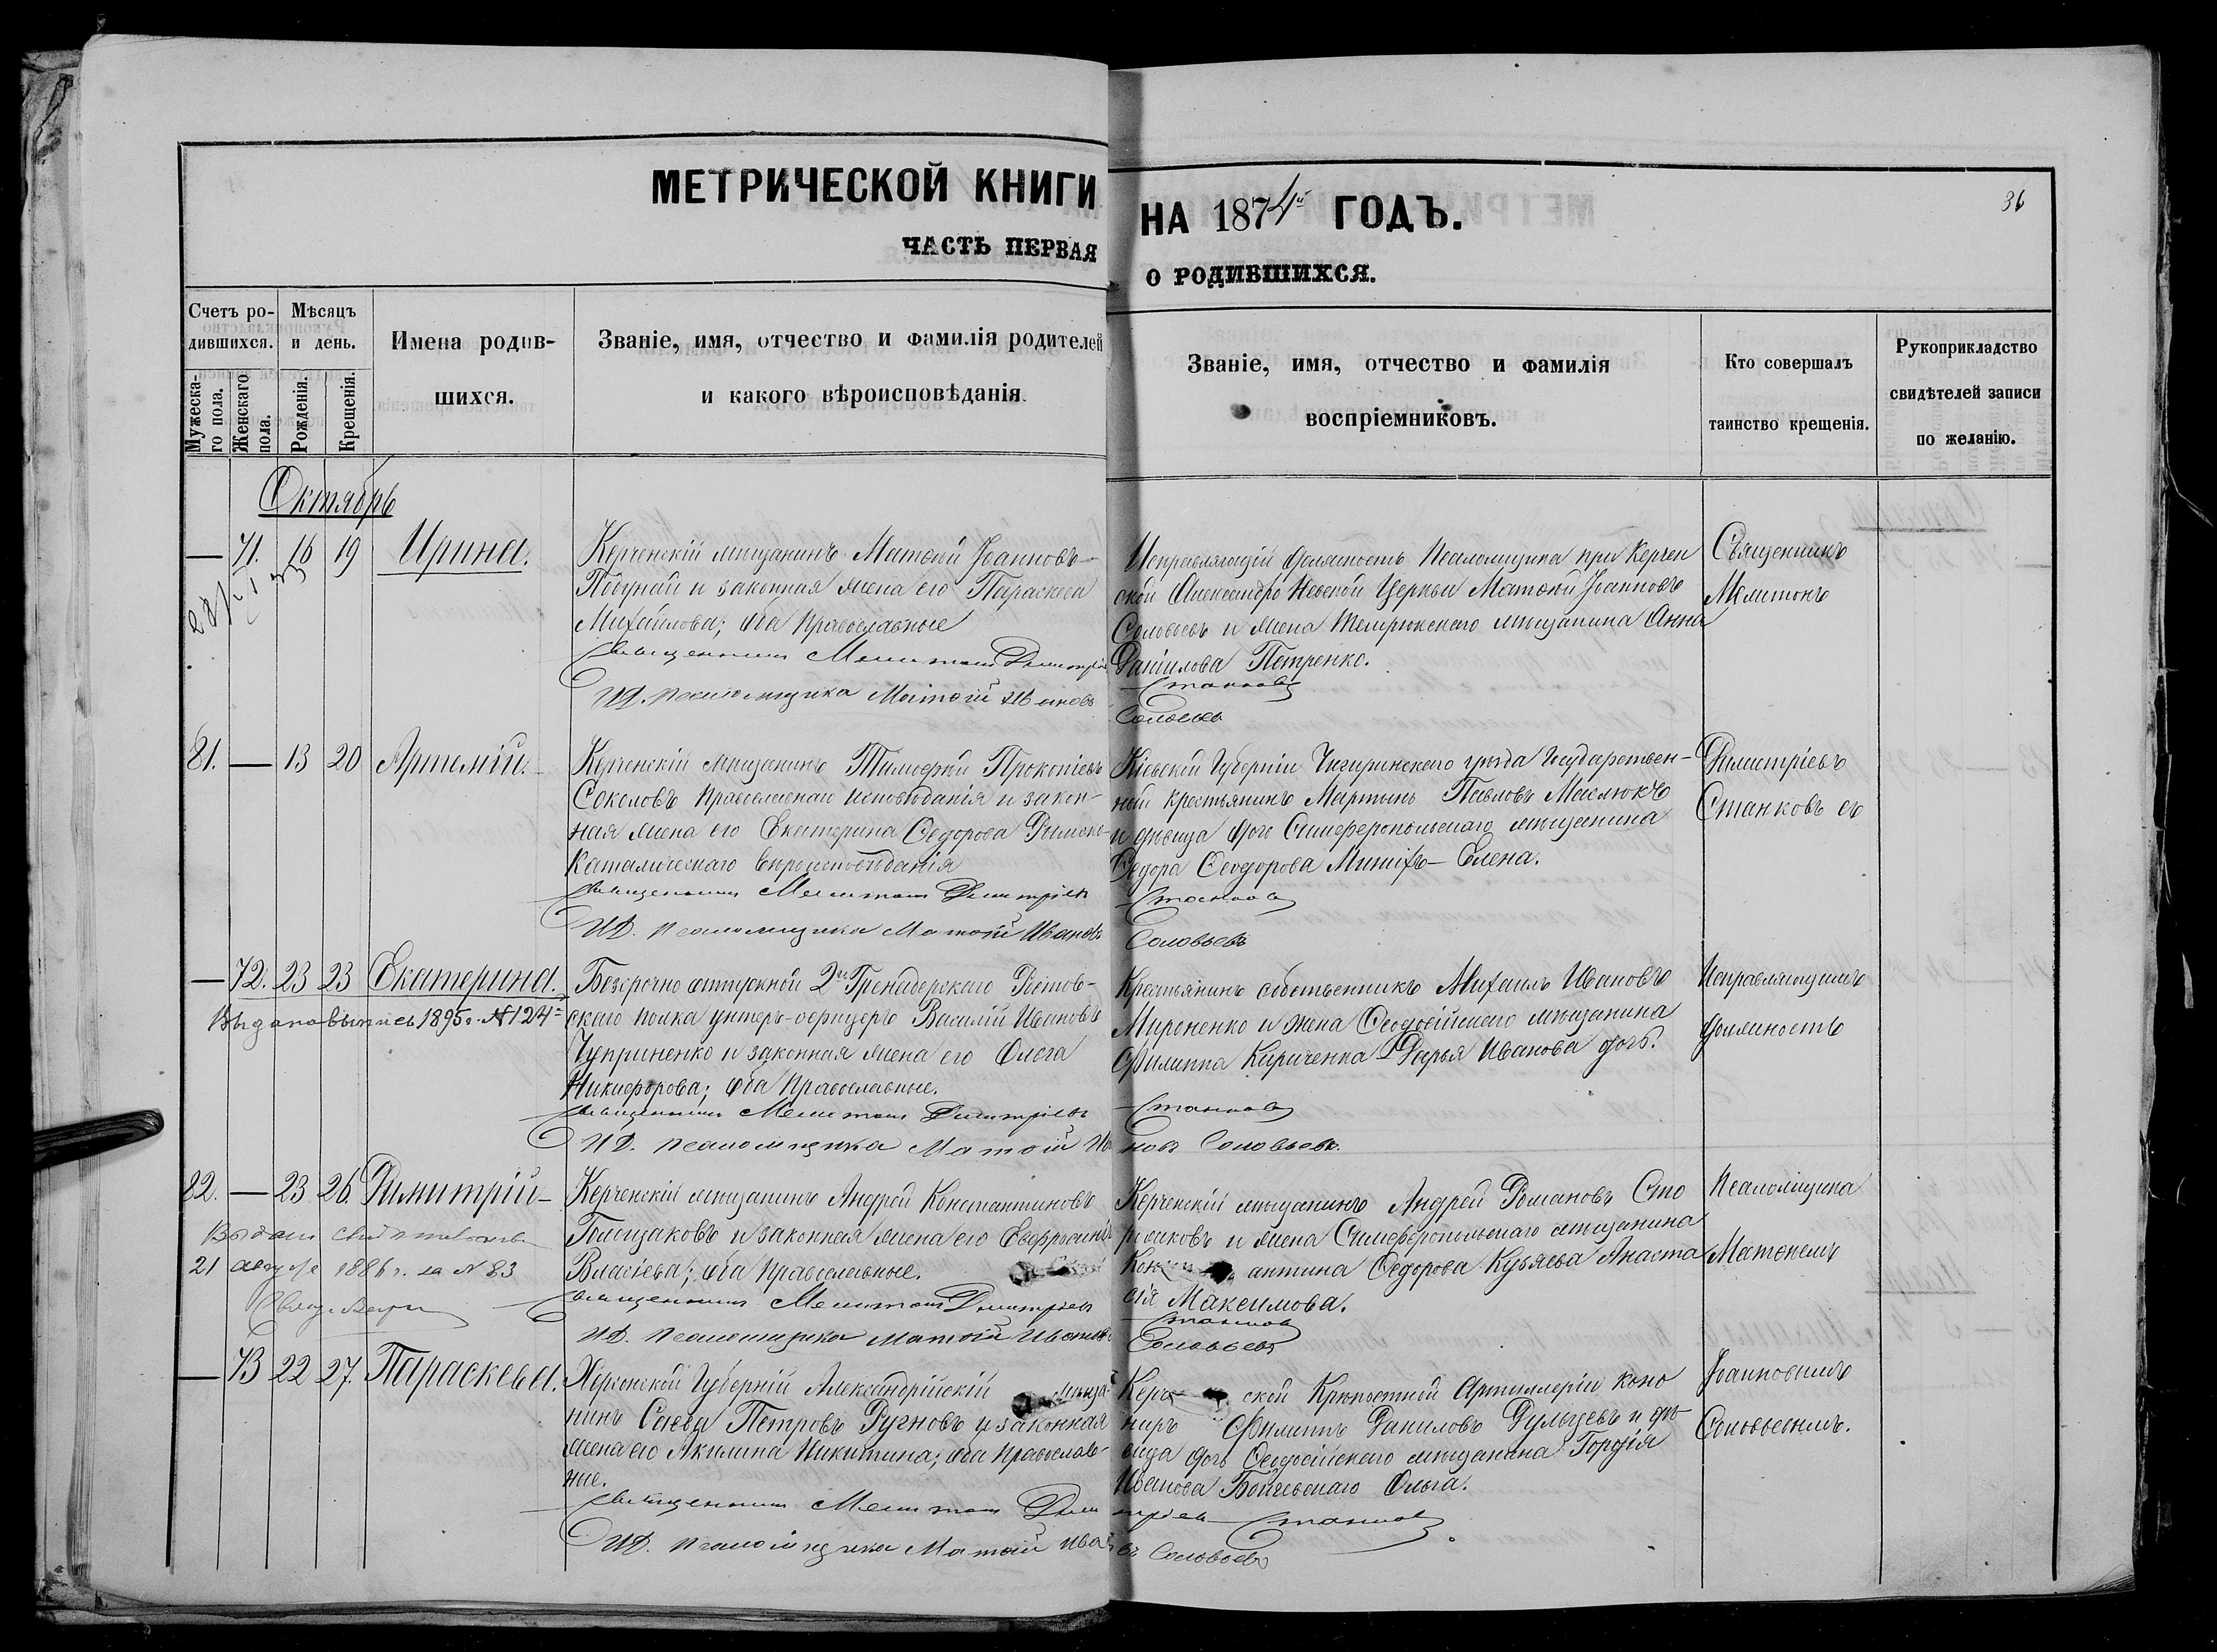 МЕТРИЧЕСКОЙ КНИГИ
НА 1874й ГОДЪ.
36
ЧАСТЬ ПЕРВАЯ
О РОДИВШИХСЯ.
Счетъ ро-
дившихся.
Мужеска-
го пола.
Женскаго
пола.
Мѣсяцъ
и день.
Рожденія.
Крещенія.
Имена родив-
шихся.
Званіе, имя, отчество и фамилія родителей
и какого вѣроисповѣданія.
Званіе, имя, отчество и фамилія
воспріемниковъ.
Кто совершалъ
таинство крещенія.
Рукоприкладство
свидѣтелей записи
по желанію.
Октябрь
— 71. 16 19 Ирина.
Керченскій мѣщанинъ Матѳій Іоанновъ
и законная жена его Параскева
Михайлова; оба Православные
Священникъ Мелитонъ Димитріевъ
И.Д. псаломщика Матѳій Ивановъ
Исправляющій должность Псаломщика при Керчен
ской Александро Невской Церкви Матѳій Іоанновъ
Соловьевъ и жена Темрюкскаго мѣщанина Анна
Даніилова Петренко.
Станковъ
Соловьевъ
Священникъ
Мелитонъ
81. — 13 20 Артемій.
Керченскій мѣщанинъ Тимоѳей Прокопіевъ
Соколовъ Православнаго исповѣданія и закон-
ная жена его Екатерина Ѳедорова Римско-
Католическаго вѣроисповѣданія
Священникъ Мелитонъ Димитріевъ
И.Д. псаломщика Матѳій Ивановъ
Кіевской Губерніи Чигиринскаго уѣзда Государствен-
ный крестьянинъ Мартынъ Павловъ Маслюкъ
и дѣвица дочь Симферопольскаго мѣщанина
Ѳедора Ѳеодорова — Елена.
Станковъ
Соловьевъ
Димитріевъ
Станковъ съ
— 72. 23 23 Екатерина.
Выдана выпись 1895 г. № 124
Безсрочно отпускной 2й Гренадерскаго Ростов-
скаго полка унтеръ-офицеръ Василій Ивановъ
Чуприненко и законная жена его Ольга
Никифорова; оба Православные.
Священникъ Мелитонъ Димитріевъ
И.Д. псаломщика Матѳій Ива
Крестьянинъ собственникъ Михаилъ Ивановъ
Мироненко и жена Ѳеодосійскаго мѣщанина
Филиппа Кириченка Дарья Иванова
Станковъ
новъ Соловьевъ.
Исправляющимъ
должность
82. — 23 26. Димитрій —
Выдано свидѣтельство
21 августа 1886 г. за № 83
Керченскій мѣщанинъ Андрей Константиновъ
Голощаковъ и законная жена его Евфросинія
Власіева; оба Православные.
Священникъ Мелитонъ Димитріевъ
И.Д. псаломщика Матѳій Ивановъ
Керченскій мѣщанинъ Андрей Романовъ Сто
рожковъ и жена Симферопольскаго мѣщанина
антина Ѳедорова Кузяева Анаста
сія Максимова.
Станковъ
Соловьевъ
Псаломщика
Матѳеемъ
— 73 22 27. Параскева.
Херсонской Губерніи Александрійскій мѣща-
нинъ Савва Петровъ и законная
жена его Акилина Никитина; оба Православ-
ные.
Священникъ Мелитонъ Дим
И.Д. псаломщика Матѳій Ива
ской Крѣпостной Артиллеріи кано
ниръ Филиппъ Даниловъ Дульцевъ и дѣ-
вица дочь Ѳеодосійскаго мѣщанина Гордія
Иванова Ольга.
тріевъ Станковъ
въ Соловьевъ
Іоанновымъ
Соловьевымъ.